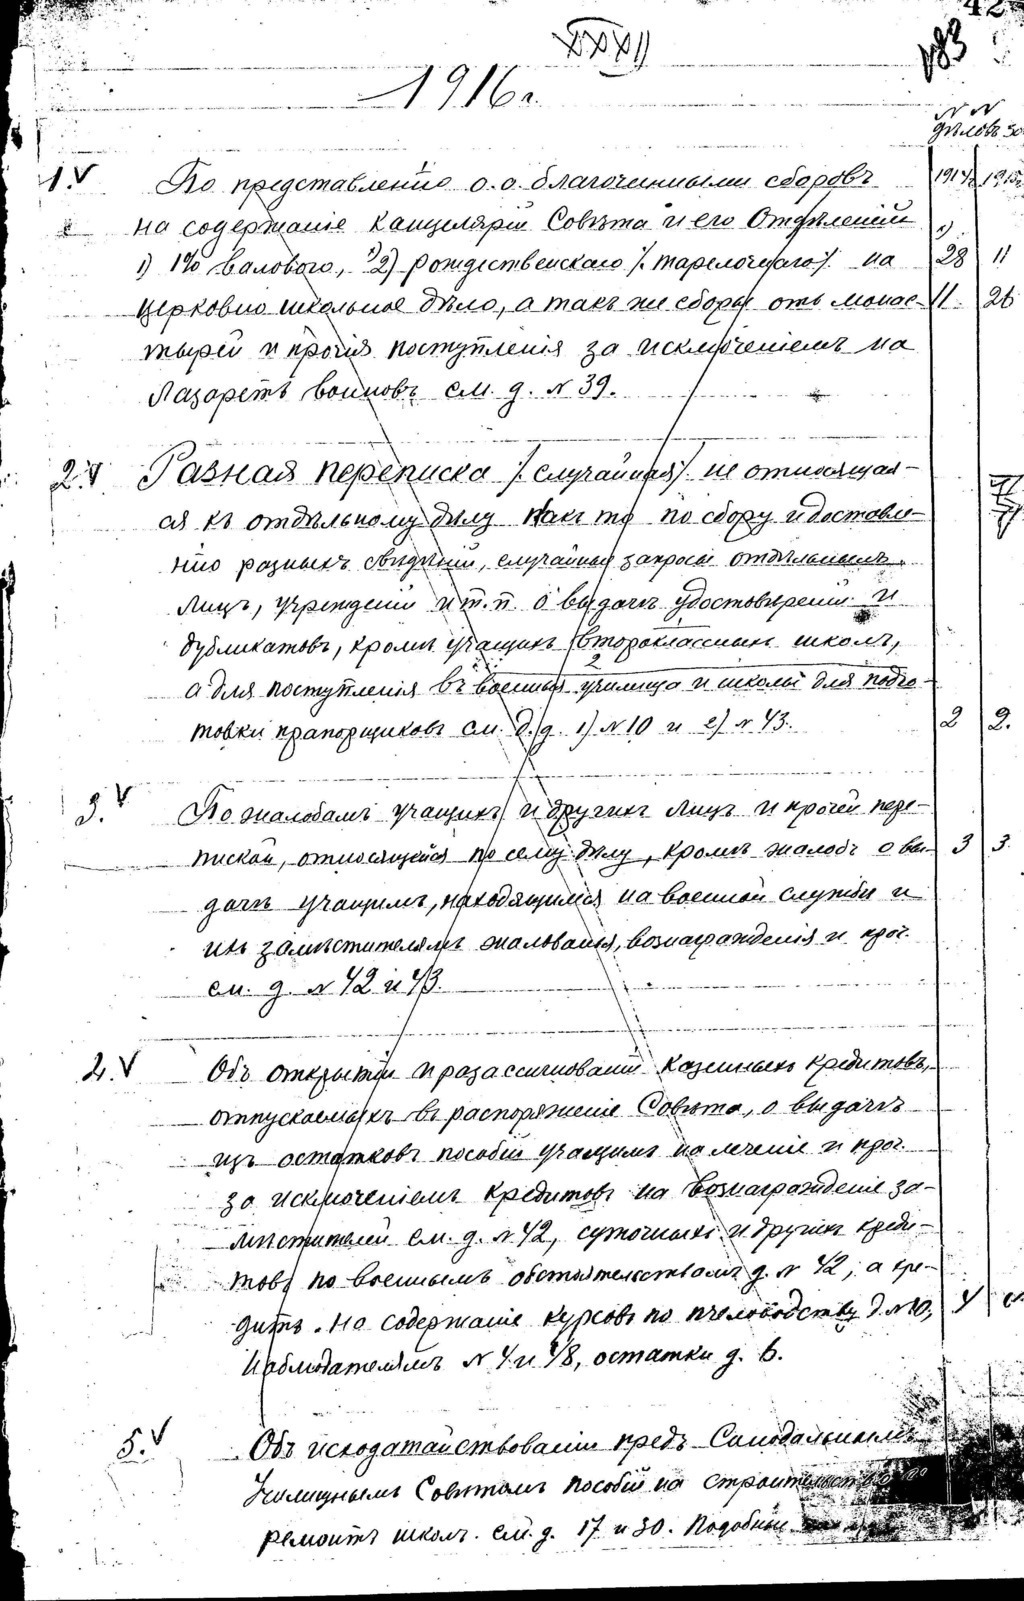 42
183
XXXII
1916 г.
N N
дѣловъ за
1914 г. 1915 г.
1. V По представленію о.о. благочинными сборовъ
на содержаніе канцеляріи Совѣта и его Отдѣленій
1) 1% валового, 2) рождественскаго /. тарелочнаго /. на 28 11
церковно школьное дѣло, а такъ же сборы отъ монас- 11 26
тырей и прочія поступленія за исключеніемъ на
Лазаретъ воиновъ см. д. N 39.
2. V Разная переписка /. случайная /. не относящая-
ся къ отдѣльному дѣлу какъ то по сбору и доставле-
нію разныхъ свѣдѣній, случайные запросы отдѣльныхъ
лицъ, учрежденій и т. п. о выдачѣ удостовѣреній и
дубликатовъ, кромѣ учащихъ второклассныхъ школъ,
а для поступленія въ военныя училища и школы для подго-
товки прапорщиковъ см. д. д. 1) N 10 и 2) N 43. 2 2.
3. V По жалобамъ учащихъ и другихъ лицъ и прочей пере-
пиской, относящейся по сему дѣлу, кромѣ жалобъ о вы- 3 3.
дачѣ учащимъ, находящимся на военной службѣ и
ихъ замѣстителямъ жалованья, вознагражденія и проч.
см. д. N 42 и 43.
4. V Объ открытіи и разассигнованіи казенныхъ кредитовъ,
отпускаемыхъ въ распоряженіе Совѣта, о выдачѣ
изъ остатковъ пособій учащимъ на леченіе и проч.
за исключеніемъ кредитовъ на вознагражденіе за-
мѣстителей см. д. N 42, суточныхъ и другихъ креди-
товъ по военнымъ обстоятельствамъ д. N 42, а кре-
дитъ на содержаніе курсовъ по пчеловодству д. N 40, 4
Наблюдателямъ N 4 и 48, остатки д. 6.
5. V Объ исходатайствованіи предъ Синодальнымъ
Училищнымъ Совѣтомъ пособій на строительство
ремонтъ школъ. см. д. 17 и 30. Подобный